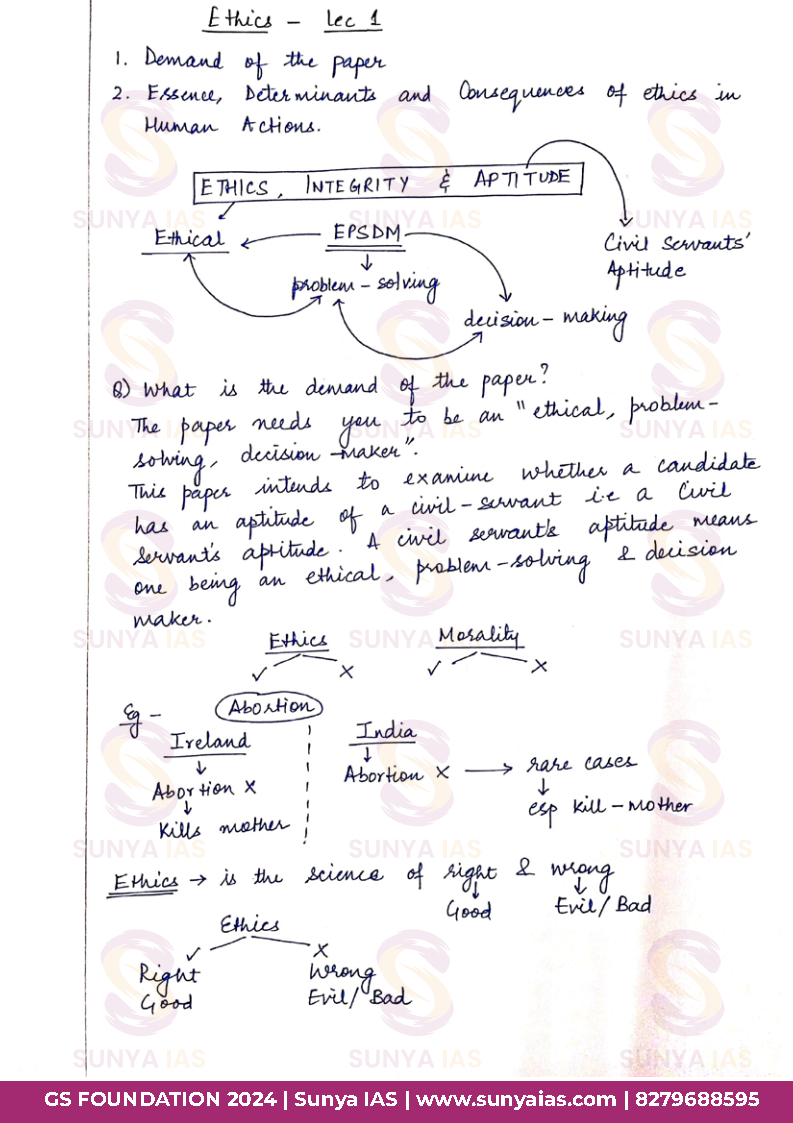 Ethics - Lec 1
1. Demand of the paper
2. Essence, Determinants and Consequences of ethics in
Human Actions.
ETHICS, INTEGRITY & APTITUDE
Ethical ← EPSDM
Civil Servants'
Aptitude
↓
problem-solving
decision-making
Q) What is the demand of the paper?
The paper needs you to be an "ethical, problem-
solving, decision-maker".
This paper intends to examine whether a candidate
has an aptitude of a civil-servant i.e a Civil
Servant's aptitude. A civil servant's aptitude means
one being an ethical, problem-solving & decision
maker.
Ethics Morality
✓ X ✓ X
Eg - Abortion
Ireland India
↓ ↓
Abortion X Abortion X → rare cases
↓ ↓
Kills mother esp kill-mother
Ethics → is the science of right & wrong
↓ ↓
Good Evil/Bad
Ethics
✓ X
Right Wrong
Good Evil/Bad
SUNYA IAS SUNYA IAS SUNYA IAS
GS FOUNDATION 2024 | Sunya IAS | www.sunyaias.com | 8279688595